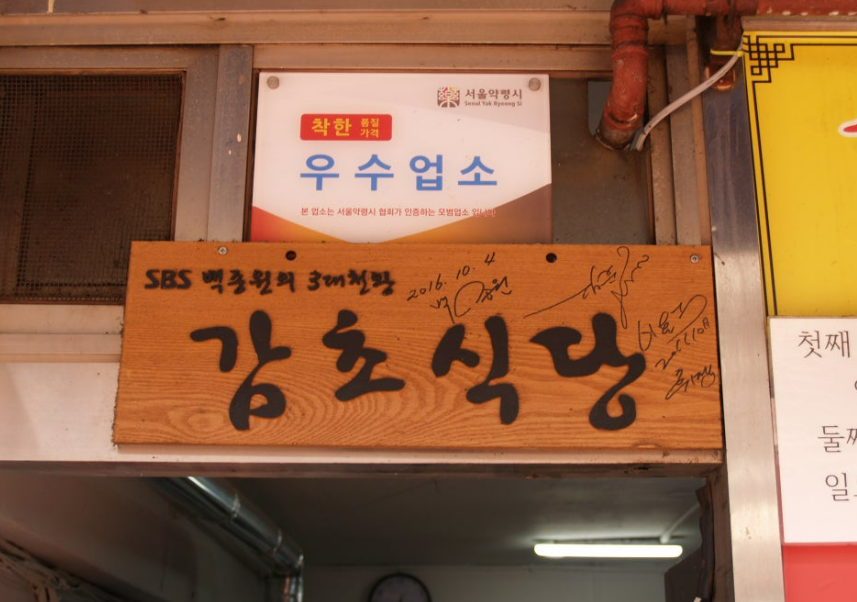 서울약령시
Seoul Yak Ryeong Si
착한 품질
가격
우수업소
본 업소는 서울약령시 협회가 인증하는 모범업소 입니다
SBS 백종원의 3대천왕
2016. 10. 4
감초식당
첫째
둘째
일